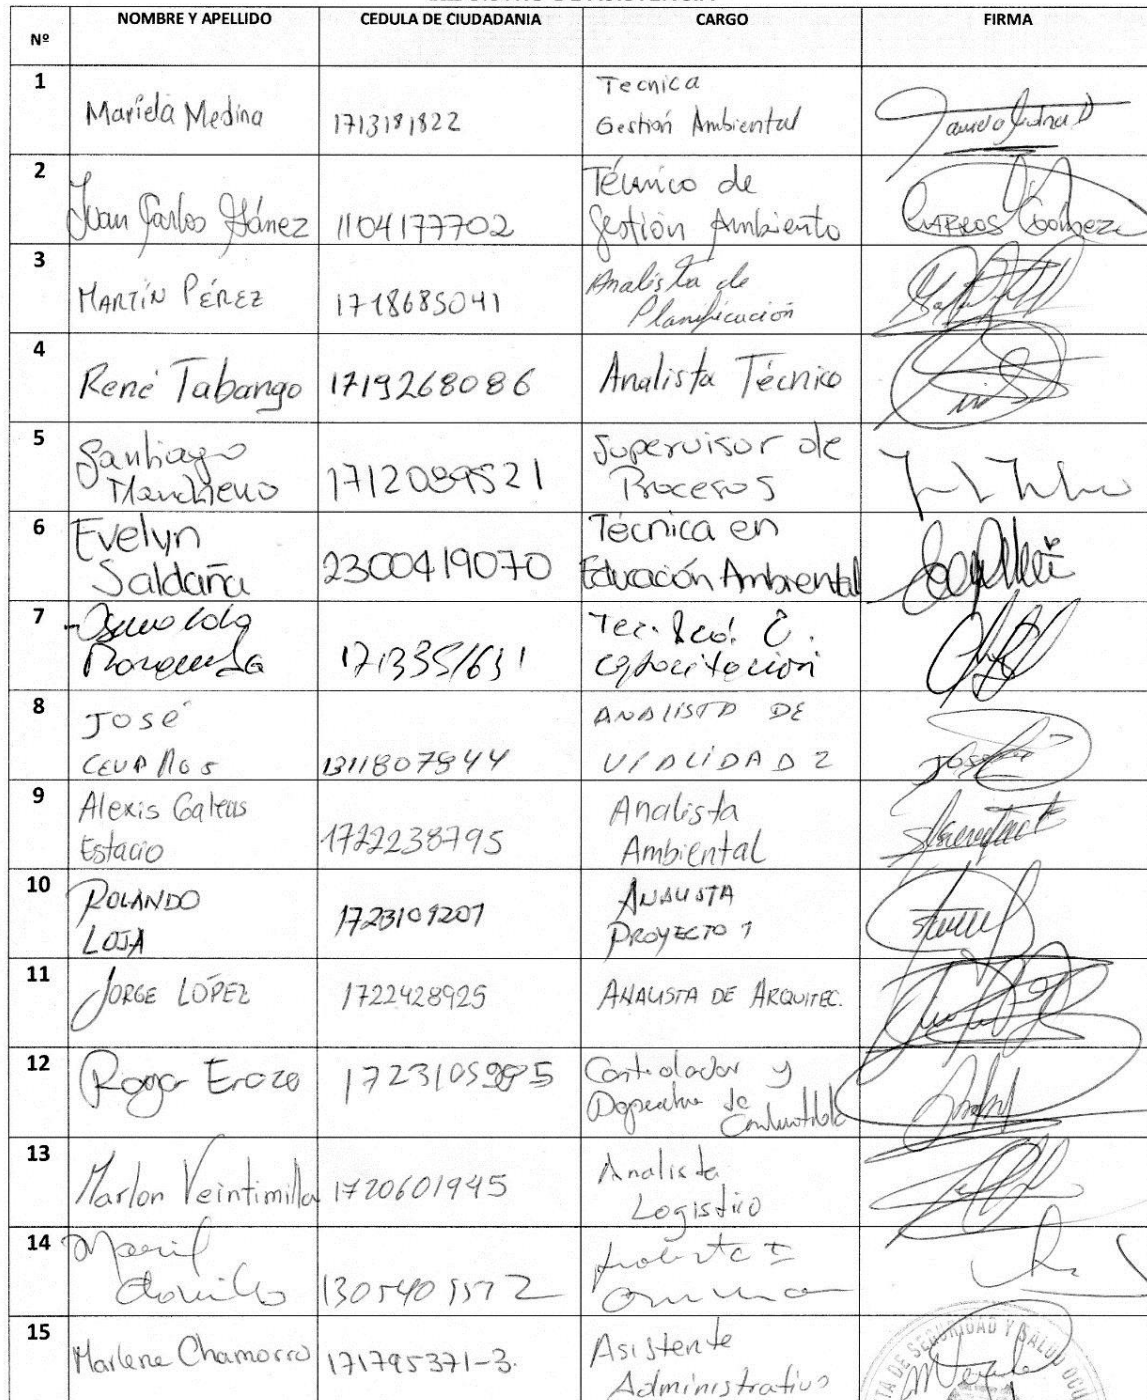 Nº NOMBRE Y APELLIDO CEDULA DE CIUDADANIA CARGO FIRMA
1 Mariela Medina 1713181822 Tecnica
Gestión Ambiental
2 Juan Carlos Gánez 1104177702 Técnico de
Gestión Ambiento
3 MARTÍN PÉREZ 1718685041 Analista de
Planificación
4 René Tabango 1719268086 Analista Técnico
5 Santiago
Mancheno 1712089521 Supervisor de
Procesos
6 Evelyn
Saldaña 2300419070 Técnica en
Educación Ambiental
7 1713351631 Tec.
capacitación
8 JOSÉ
CEVALLOS 1311807844 ANALISTA DE
VIALIDAD 2
JOSÉ
9 Alexis Galeas
Estacio 1722238795 Analista
Ambiental
10 ROLANDO
LOJA 1723109207 ANALISTA
PROYECTO 1
11 JORGE LÓPEZ 1722428925 ANALISTA DE ARQUITEC.
12 Roger Erazo 1723105985 Controlador y
de
13 Marlon Veintimilla 1720601945 Analista
Logistico
14
15 Marlene Chamorro 171795371-3. Asistente
Administrativo
DE SEGURIDAD Y SALUD